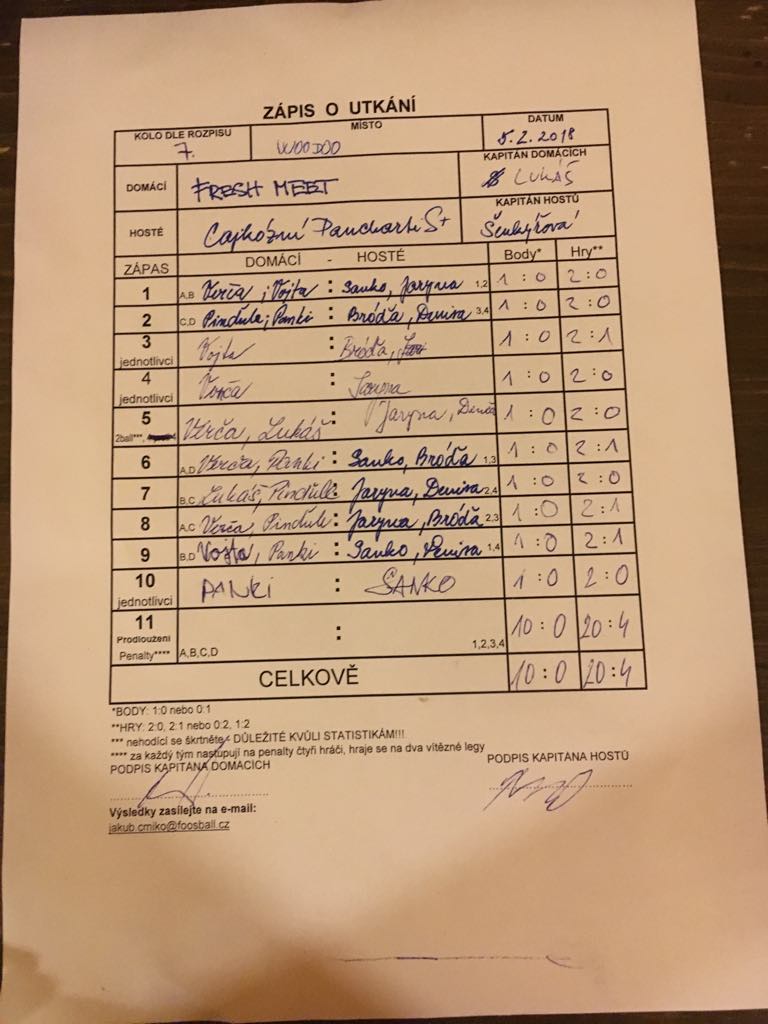 ZÁPIS O UTKÁNÍ
KOLO DLE ROZPISU MÍSTO DATUM
7. WOODOO 5.2.2018
DOMÁCÍ FRESH MEET KAPITÁN DOMÁCÍCH LUKÁŠ
HOSTÉ Cajkózní Pancharti S+ KAPITÁN HOSTŮ Šenkýřová
ZÁPAS DOMÁCÍ - HOSTÉ Body* Hry**
1 A,B Verča, Vojta : Sanko, Jaryna 1,2 1:0 2:0
2 C,D Pinďula, Panki : Bróďa, Denisa 3,4 1:0 2:0
3 jednotlivci Vojta : Bróďa, 1:0 2:1
4 jednotlivci Verča : 1:0 2:0
5 2ball***, Verča, Lukáš Jaryna, Denisa 1:0 2:0
6 A,D Verča, Panki : Sanko, Bróďa 1,3 1:0 2:1
7 B,C Lukáš, Pinďull : Jaryna, Denisa 2,4 1:0 2:0
8 A,C Verča, Pinďull : Jaryna, Bróďa 2,3 1:0 2:1
9 B,D Vojta, Panki : Sanko, Denisa 1,4 1:0 2:1
10 jednotlivci PANKI : ŠANKO 1:0 2:0
11 Prodloužení Penalty**** A,B,C,D : 1,2,3,4 10:0 20:4
CELKOVĚ 10:0 20:4
*BODY: 1:0 nebo 0:1
**HRY: 2:0, 2:1 nebo 0:2, 1:2
*** nehodící se škrtněte - DŮLEŽITÉ KVŮLI STATISTIKÁM!!!
**** za každý tým nastupují na penalty čtyři hráči, hraje se na dva vítězné legy
PODPIS KAPITÁNA DOMÁCÍCH PODPIS KAPITÁNA HOSTŮ
Výsledky zasílejte na e-mail:
jakub.cmiko@foosball.cz